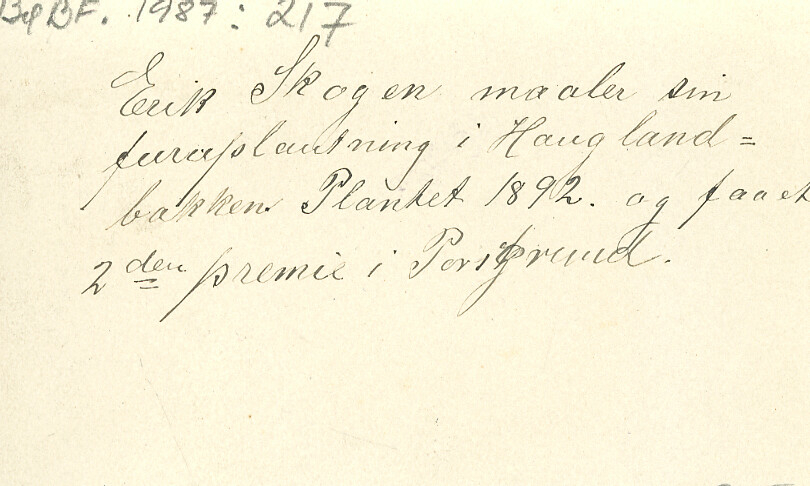 BøBF. 1987: 217
Erik Skogen maaler sin
furuplantning i Haugland=
bakken. Plantet 1892. og faaet
2den premie i Porsgrund.